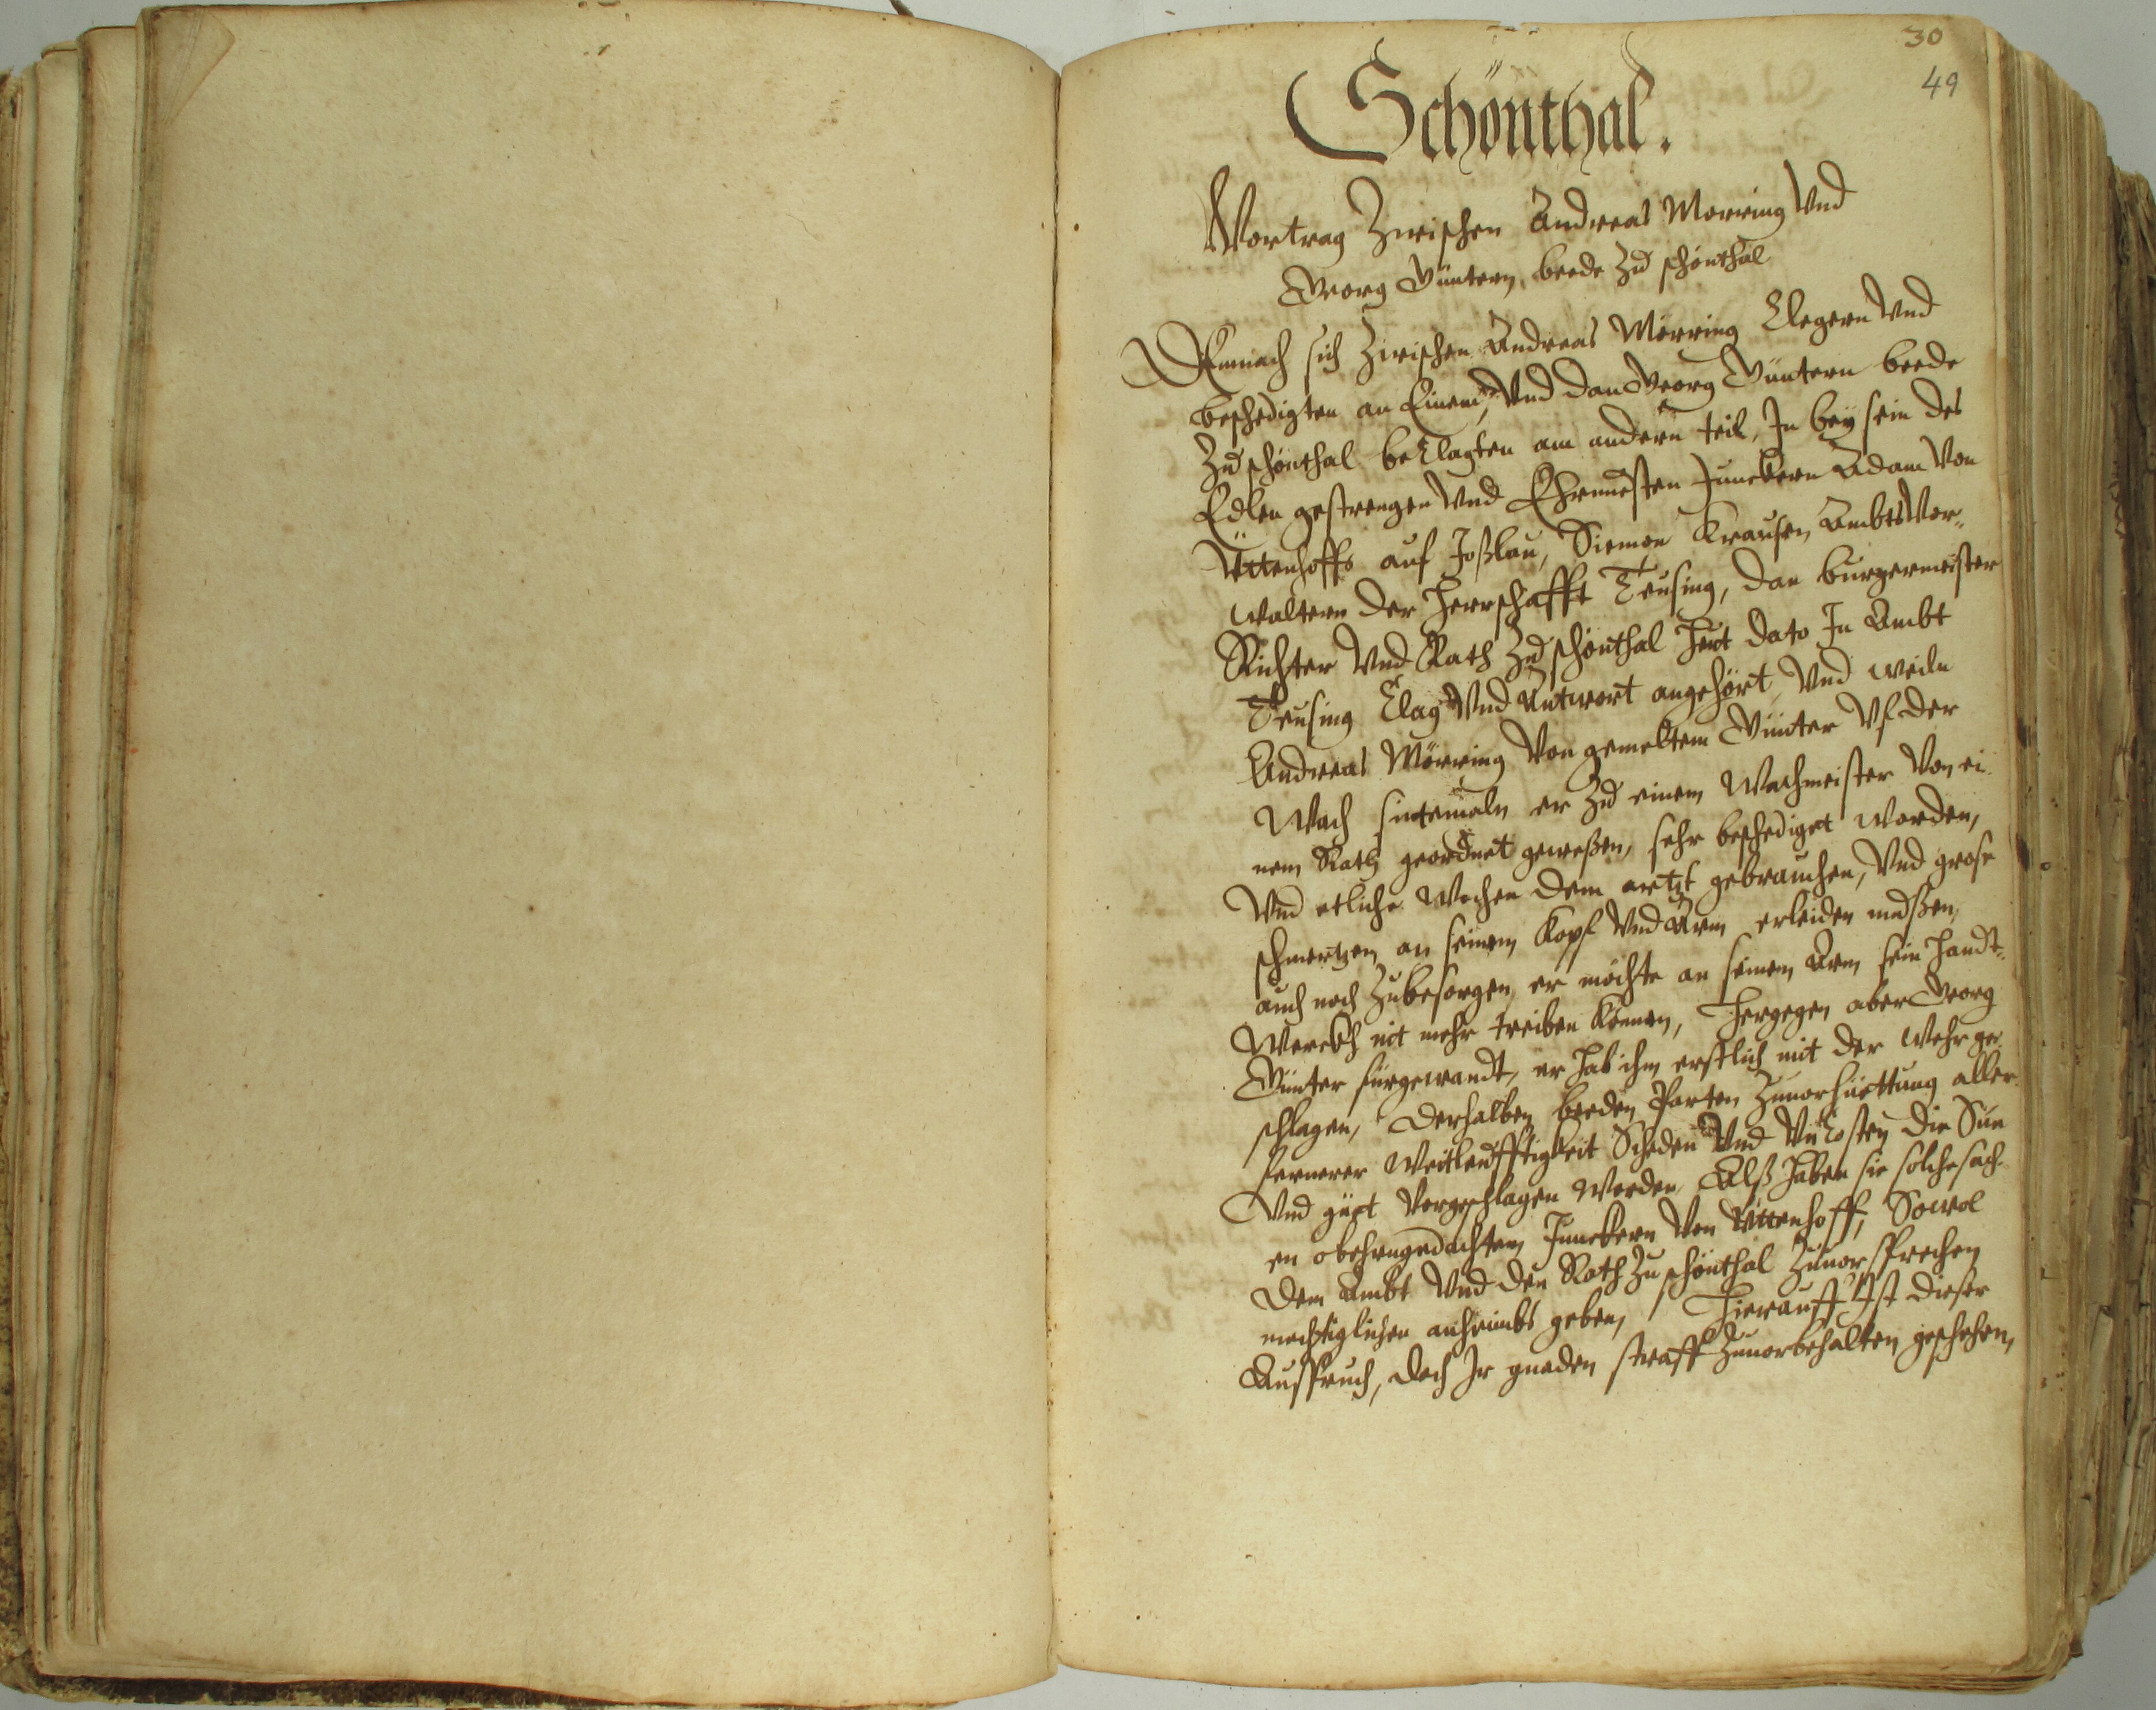 30
49
Schönthal.
Vertrag Zwischen Andreas Mörring Vnd
Georg Güntern, beede Zu schönthal
Demnach sich Zwischen Andreas Mörring Clegern Vnd
beschedigten an Einem, Vnd dan Georg Güntern beede
Zu schönthal beklagten am andern teil, In beysein des
Edlen gestrengen Vnd Ehrnuesten Junckern Adam Von
Üttenhoffs auf Joßlau, Siemon Krausen AmbtsVer„
waltern der Herrschafft Teusing, dan burgermeister
Richter Vnd Rath Zu schönthal Heut dato In Ambt
Teusing Clag Vnd Antwort angehört, Vnd weiln
Andreas Mörring Von gemeltem Günter Vf der
Wach sintemaln er Zu einem Wachmeister Von ei
nem Rath geordnet geweßen, sehr beschediget worden,
Vnd etliche Wochen dem artzt gebrauchen, Vnd grose
schmertzen an seinem Kopf Vnd Arm erleiden müßen,
auch noch Zubesorgen, er möchte an seinem Arm sein Handt„
Werckh nit mehr treiben können, Hergegen aber Georg
Günter fürgewandt, er hab ihn erstlich mit der Wehr ge
schlagen, Derhalben beeden Parten Zuuorhüettung aller
fernerer Weitleufftigkeit Scheden Vnd Vnkosten die Sün
Vnd güet Vorgeschlagen Worden, Alß haben sie solche sach
en obehrngedachtem Junckern Von Üttenhoff, Sowol
dem Ambt Vnd den Rath Zu schönthal Zuuorsprechen
mechtiglichen anheimbs geben, Hierauff Ist dieser
Ausspruch, doch Ir gnaden straff Zuuorbehalten geschehen,